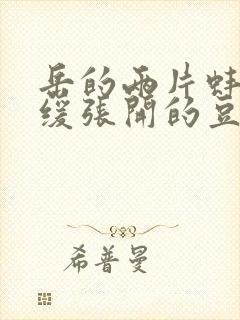 岳的两片蚌
缓张开的豆
希普曼